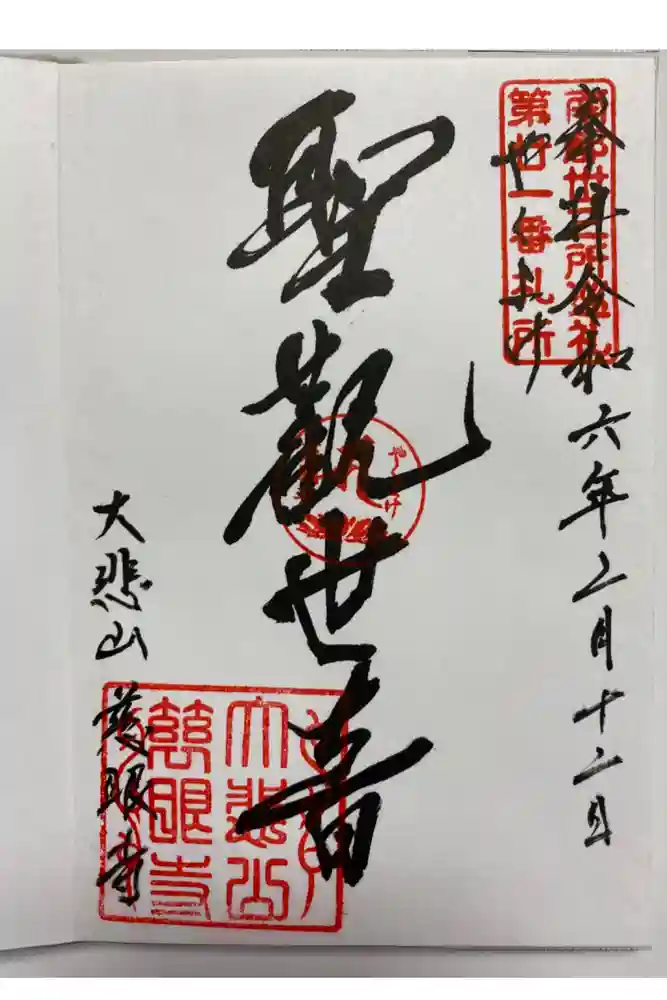 奉拝 令和六年二月十二日
第廿一番札所
聖觀世音
やくよけ
大悲山 慈眼寺
大悲山
慈眼寺